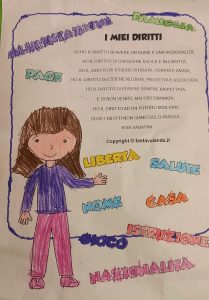 FAMIGLIA
ALIMENTAZIONE
I MIEI DIRITTI
IO HO IL DIRITTO DI AVERE UN NOME E UNA NAZIONALITÀ,
HO IL DIRITTO DI CRESCERE FELICE E IN LIBERTÀ,
HO IL DIRITTO DI ESSERE ISTRUITA, CURATA E AMATA,
HO IL DIRITTO DI ESSERE NUTRITA, PROTETTA E ACCOLTA,
HO IL DIRITTO DI ESSERE SEMPRE RISPETTATA
E DI NON VENIRE MAI DISCRIMINATA.
HO IL DIRITTO AD UN FUTURO MIGLIORE,
DOVE I DIRITTI NON SIANO SOLO PAROLE.
RITA SABATINI
PACE
Copyright © fantavolando.it
LIBERTÀ
SALUTE
NOME
CASA
ISTRUZIONE
GIOCO
NAZIONALITÀ